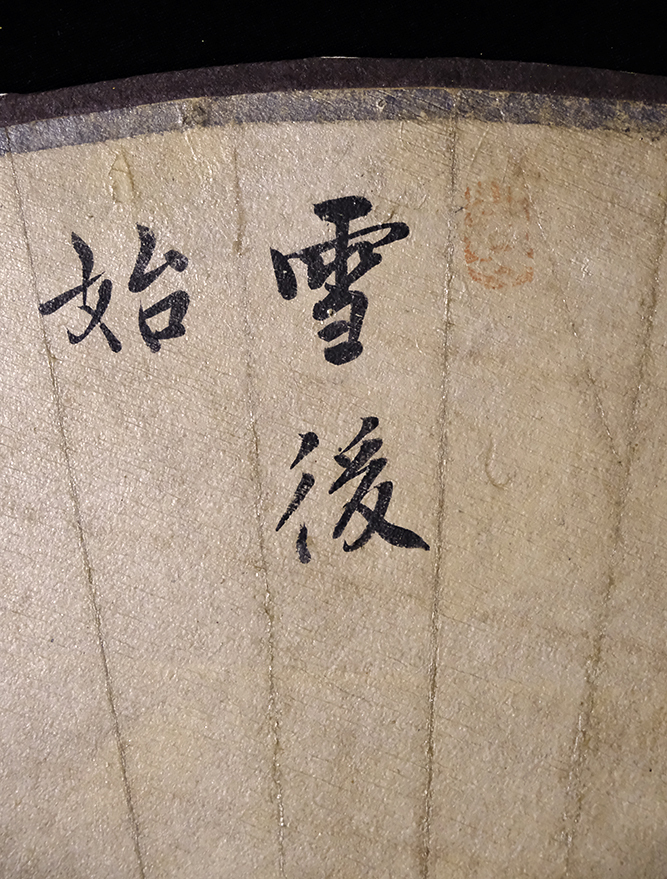 雪後
始